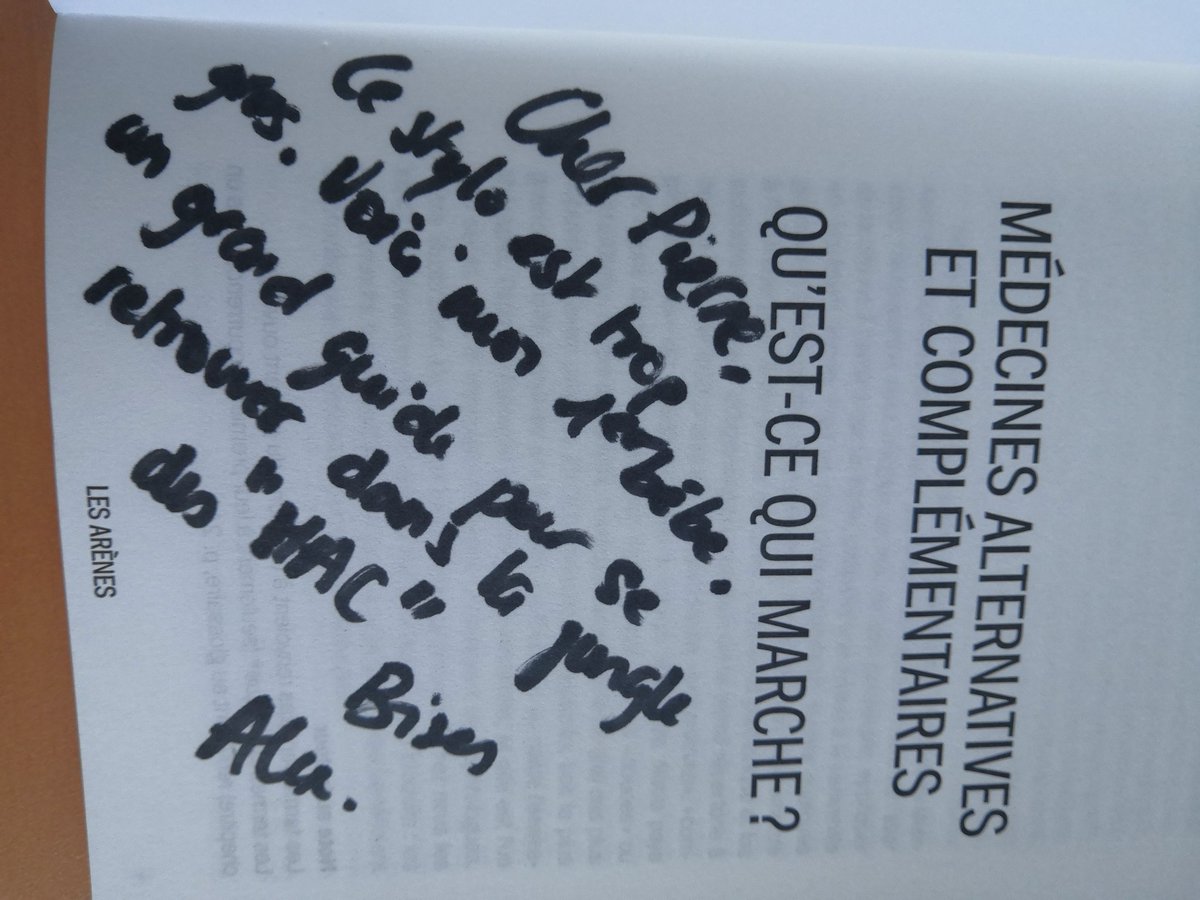 MÉDECINES ALTERNATIVES
ET COMPLÉMENTAIRES
QU'EST-CE QUI MARCHE ?
Cher Pierre,
Ce stylo est trop
gros. Voici mon 1er bébé.
un grand guide pour se
retrouver dans la jungle
des "MAC"
Bises
LES ARÈNES